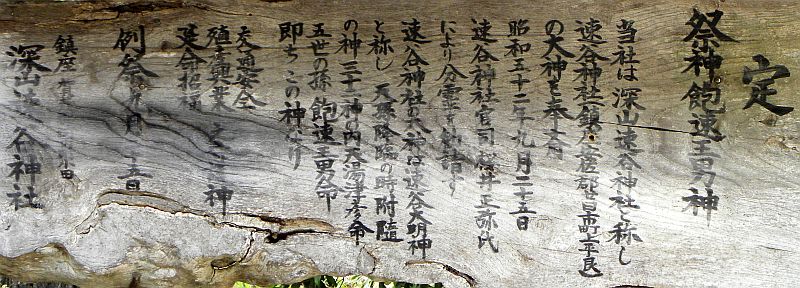 定
祭神 飽速玉男神
当社は深山速谷神社と称し
速谷神社(鎮座佐伯郡廿日市町上平良)
の大神を奉斎す
昭和五十二年九月二十五日
速谷神社宮司櫻井正弥氏
により分霊を勧請す
速谷神社の大神は速谷大明神
と称し 天孫降臨の時附随
の神三十二神の内天湯津彦命
五世の孫 飽速玉男命
即ちこの神なり
交通安全
殖産興業 神
延命招福
例祭 九月 五日
鎮座
深山速谷神社